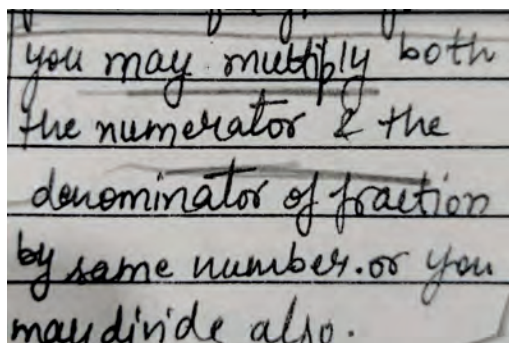 you may multiply both
the numerator & the
denominator of fraction
by same number. or you
may divide also.